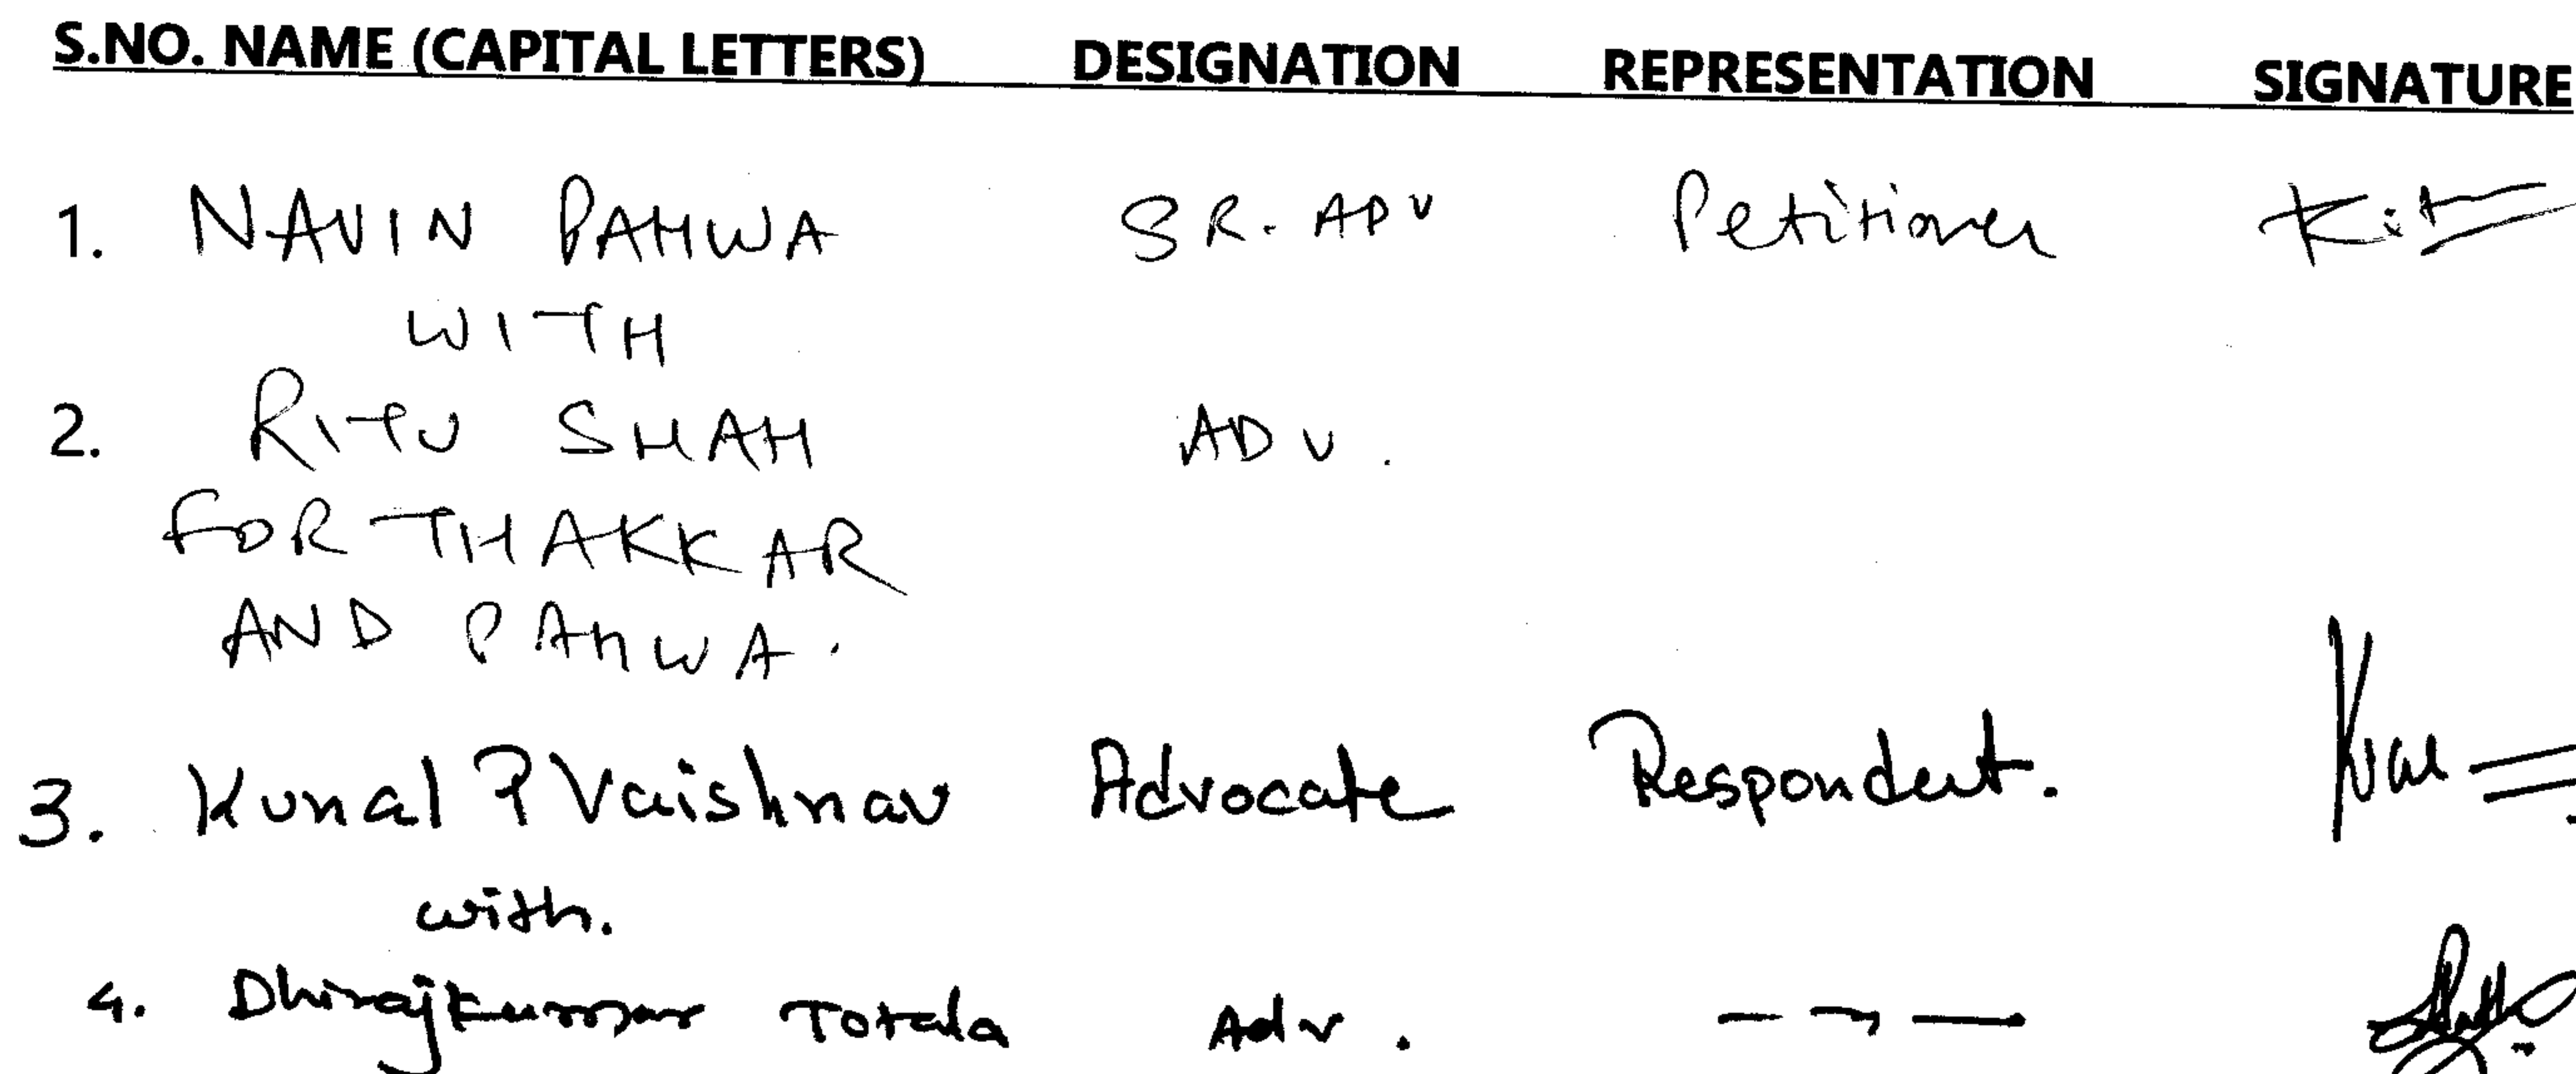 S.NO. NAME (CAPITAL LETTERS) DESIGNATION REPRESENTATION SIGNATURE
1. NAVIN PAHWA SR. ADV Petitioner
WITH
2. RITU SHAH ADV.
FOR THAKKAR
AND PAHWA.
3. Kunal P Vaishnav Advocate Respondent.
with.
4. Dhirajkumar Totala Adv.